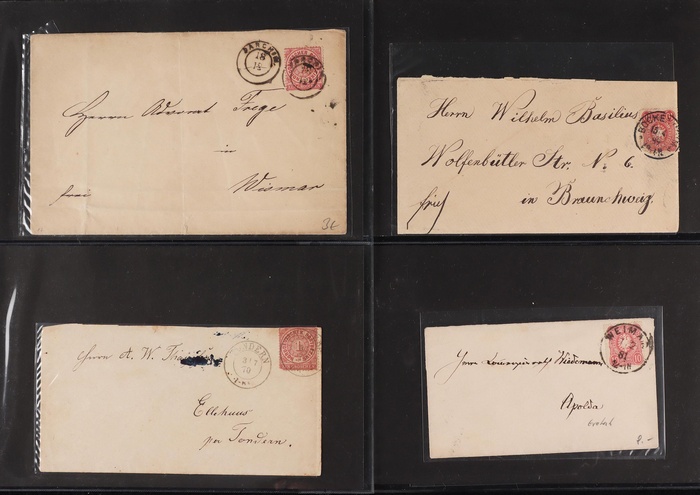 PARCHIM
18
12
Herrn Advocat Frege
in
frei
Wismar
3€
Herrn Wilhelm Basilius
BOCKE
Wolfenbütler Str. No 6.
frei
in Braunschweig.
TONDERN
70
Herrn A. W.
Ellehuus
per Tondern.
WEIMAR
81
Herrn Wiedemann
Apolda
8.-